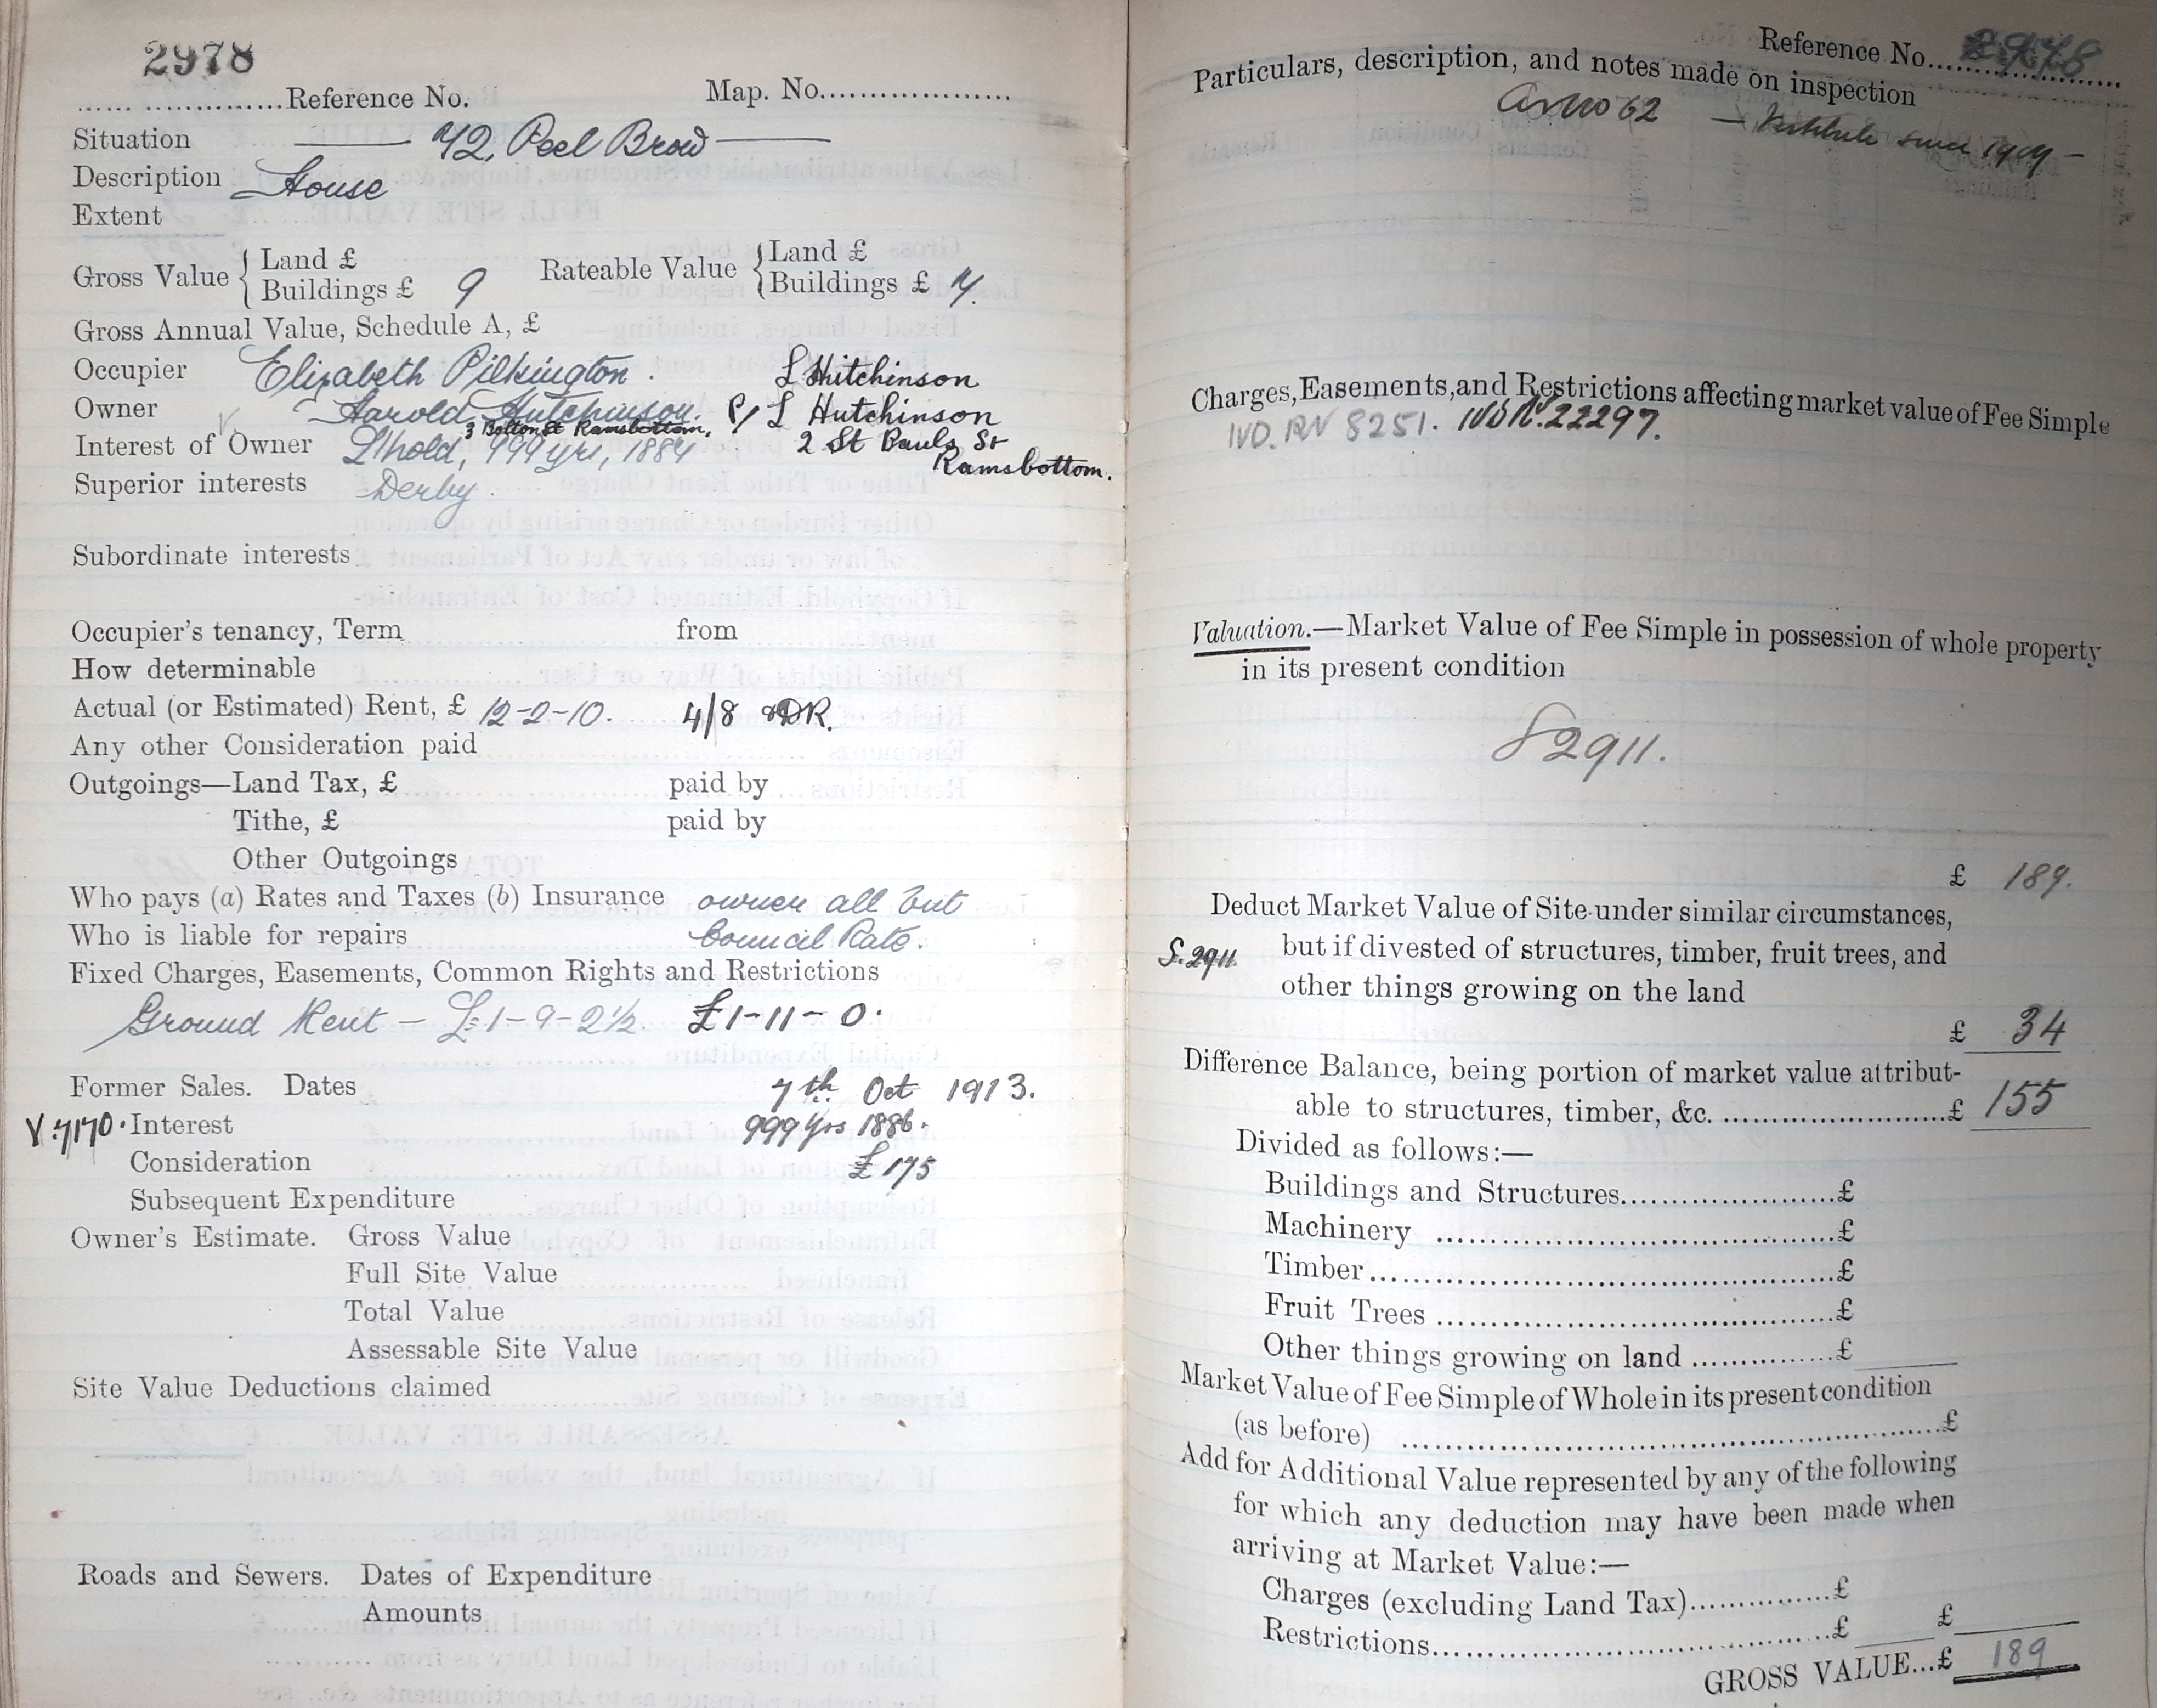 2978
...... ..................Reference No. Map. No....................
Situation 72, Peel Brow
Description House
Extent
Gross Value { Land £ Rateable Value { Land £
Buildings £ 9 Buildings £ 7.
Gross Annual Value, Schedule A, £
Occupier Elizabeth Pilkington. L Hitchinson
Owner Harold Hutchinson. L Hutchinson
3 Bolton St Ramsbottom,
Interest of Owner L'hold, 999 yrs, 1884 2 St Pauls St
Ramsbottom.
Superior interests Derby.
Subordinate interests
Occupier's tenancy, Term from
How determinable
Actual (or Estimated) Rent, £ 12-2-10. 4/8 &DR.
Any other Consideration paid
Outgoings—Land Tax, £ paid by
Tithe, £ paid by
Other Outgoings
Who pays (a) Rates and Taxes (b) Insurance owner all but
Who is liable for repairs Council Rate.
Fixed Charges, Easements, Common Rights and Restrictions
Ground Rent - £1-9-2½. £1-11-0.
Former Sales. Dates 7th Oct 1913.
V.7170. Interest 999 yrs 1886.
Consideration £175
Subsequent Expenditure
Owner's Estimate. Gross Value
Full Site Value
Total Value
Assessable Site Value
Site Value Deductions claimed
Roads and Sewers. Dates of Expenditure
Amounts
Reference No. 2978
Particulars, description, and notes made on inspection
As no 62 — Vestibule since 1909 —
Charges, Easements, and Restrictions affecting market value of Fee Simple
IVD. RN 8251. IVD N. 22297.
Valuation.—Market Value of Fee Simple in possession of whole property
in its present condition
S2911.
£ 189.
Deduct Market Value of Site under similar circumstances,
S.2911. but if divested of structures, timber, fruit trees, and
other things growing on the land
£ 34
Difference Balance, being portion of market value attribut-
able to structures, timber, &c. ........................£ 155
Divided as follows:—
Buildings and Structures.......................£
Machinery .......................................£
Timber.............................................£
Fruit Trees .......................................£
Other things growing on land ...............£
Market Value of Fee Simple of Whole in its present condition
(as before) ......................................................£
Add for Additional Value represented by any of the following
for which any deduction may have been made when
arriving at Market Value:—
Charges (excluding Land Tax)...............£
Restrictions..........................................£ £
GROSS VALUE...£ 189